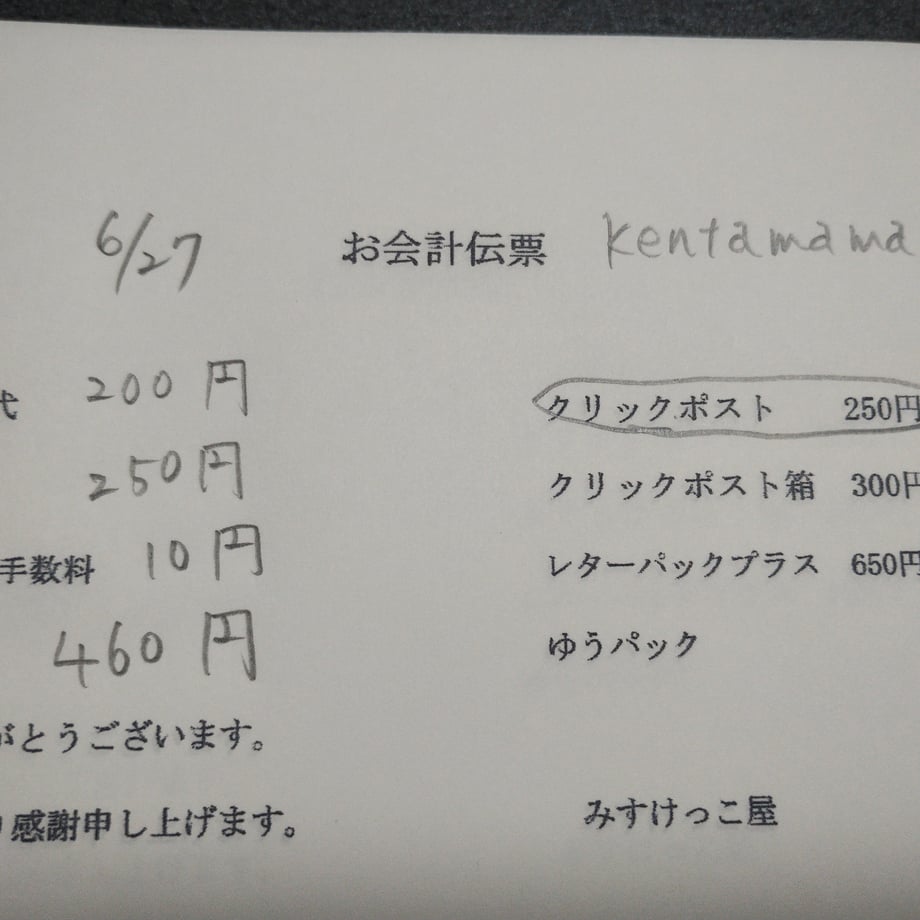 6/27 お会計伝票 kentamama
代 200円 クリックポスト 250円
250円 クリックポスト箱 300円
手数料 10円 レターパックプラス 650円
460円 ゆうパック
がとうございます。
感謝申し上げます。 みすけっこ屋